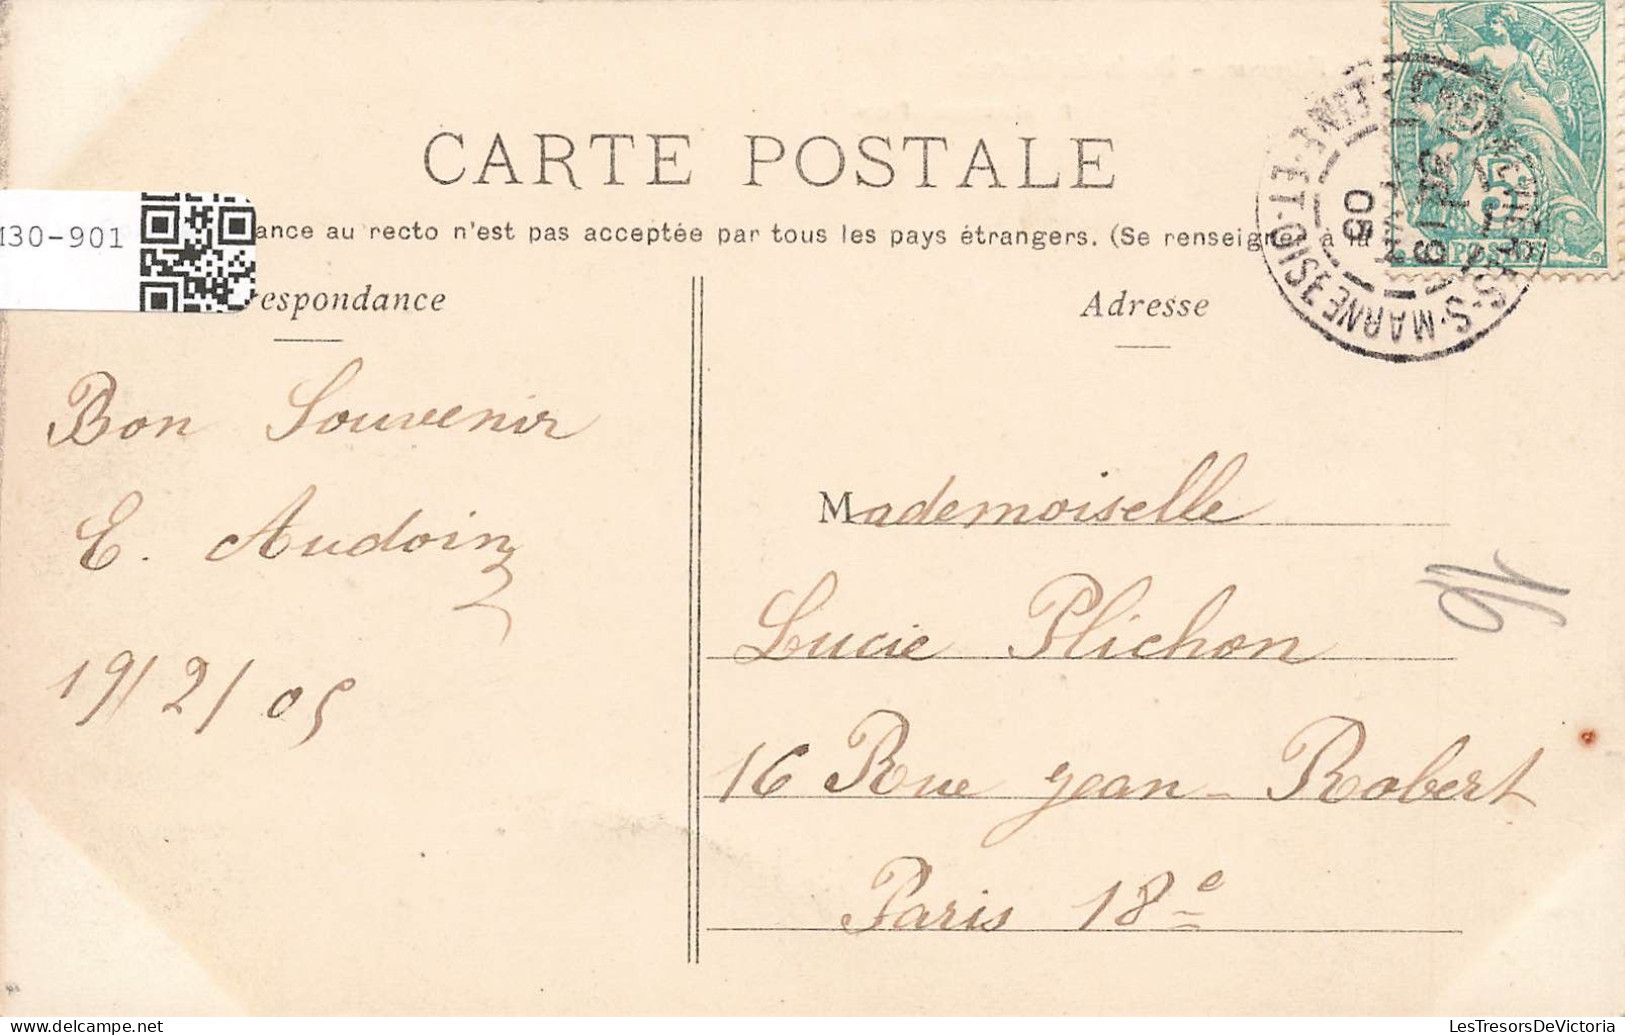 CARTE POSTALE
130-901
ance au recto n'est pas acceptée par tous les pays étrangers. (Se renseigner à la
respondance
Adresse
Bon Souvenir
E. Audoin
19/2/05
Mademoiselle
Lucie Plichon
16 Rue Jean-Robert
Paris 18e
S-S-MARNE
SEINE-ET-OISE
05
5
POSTES
LesTresorsDeVictoria